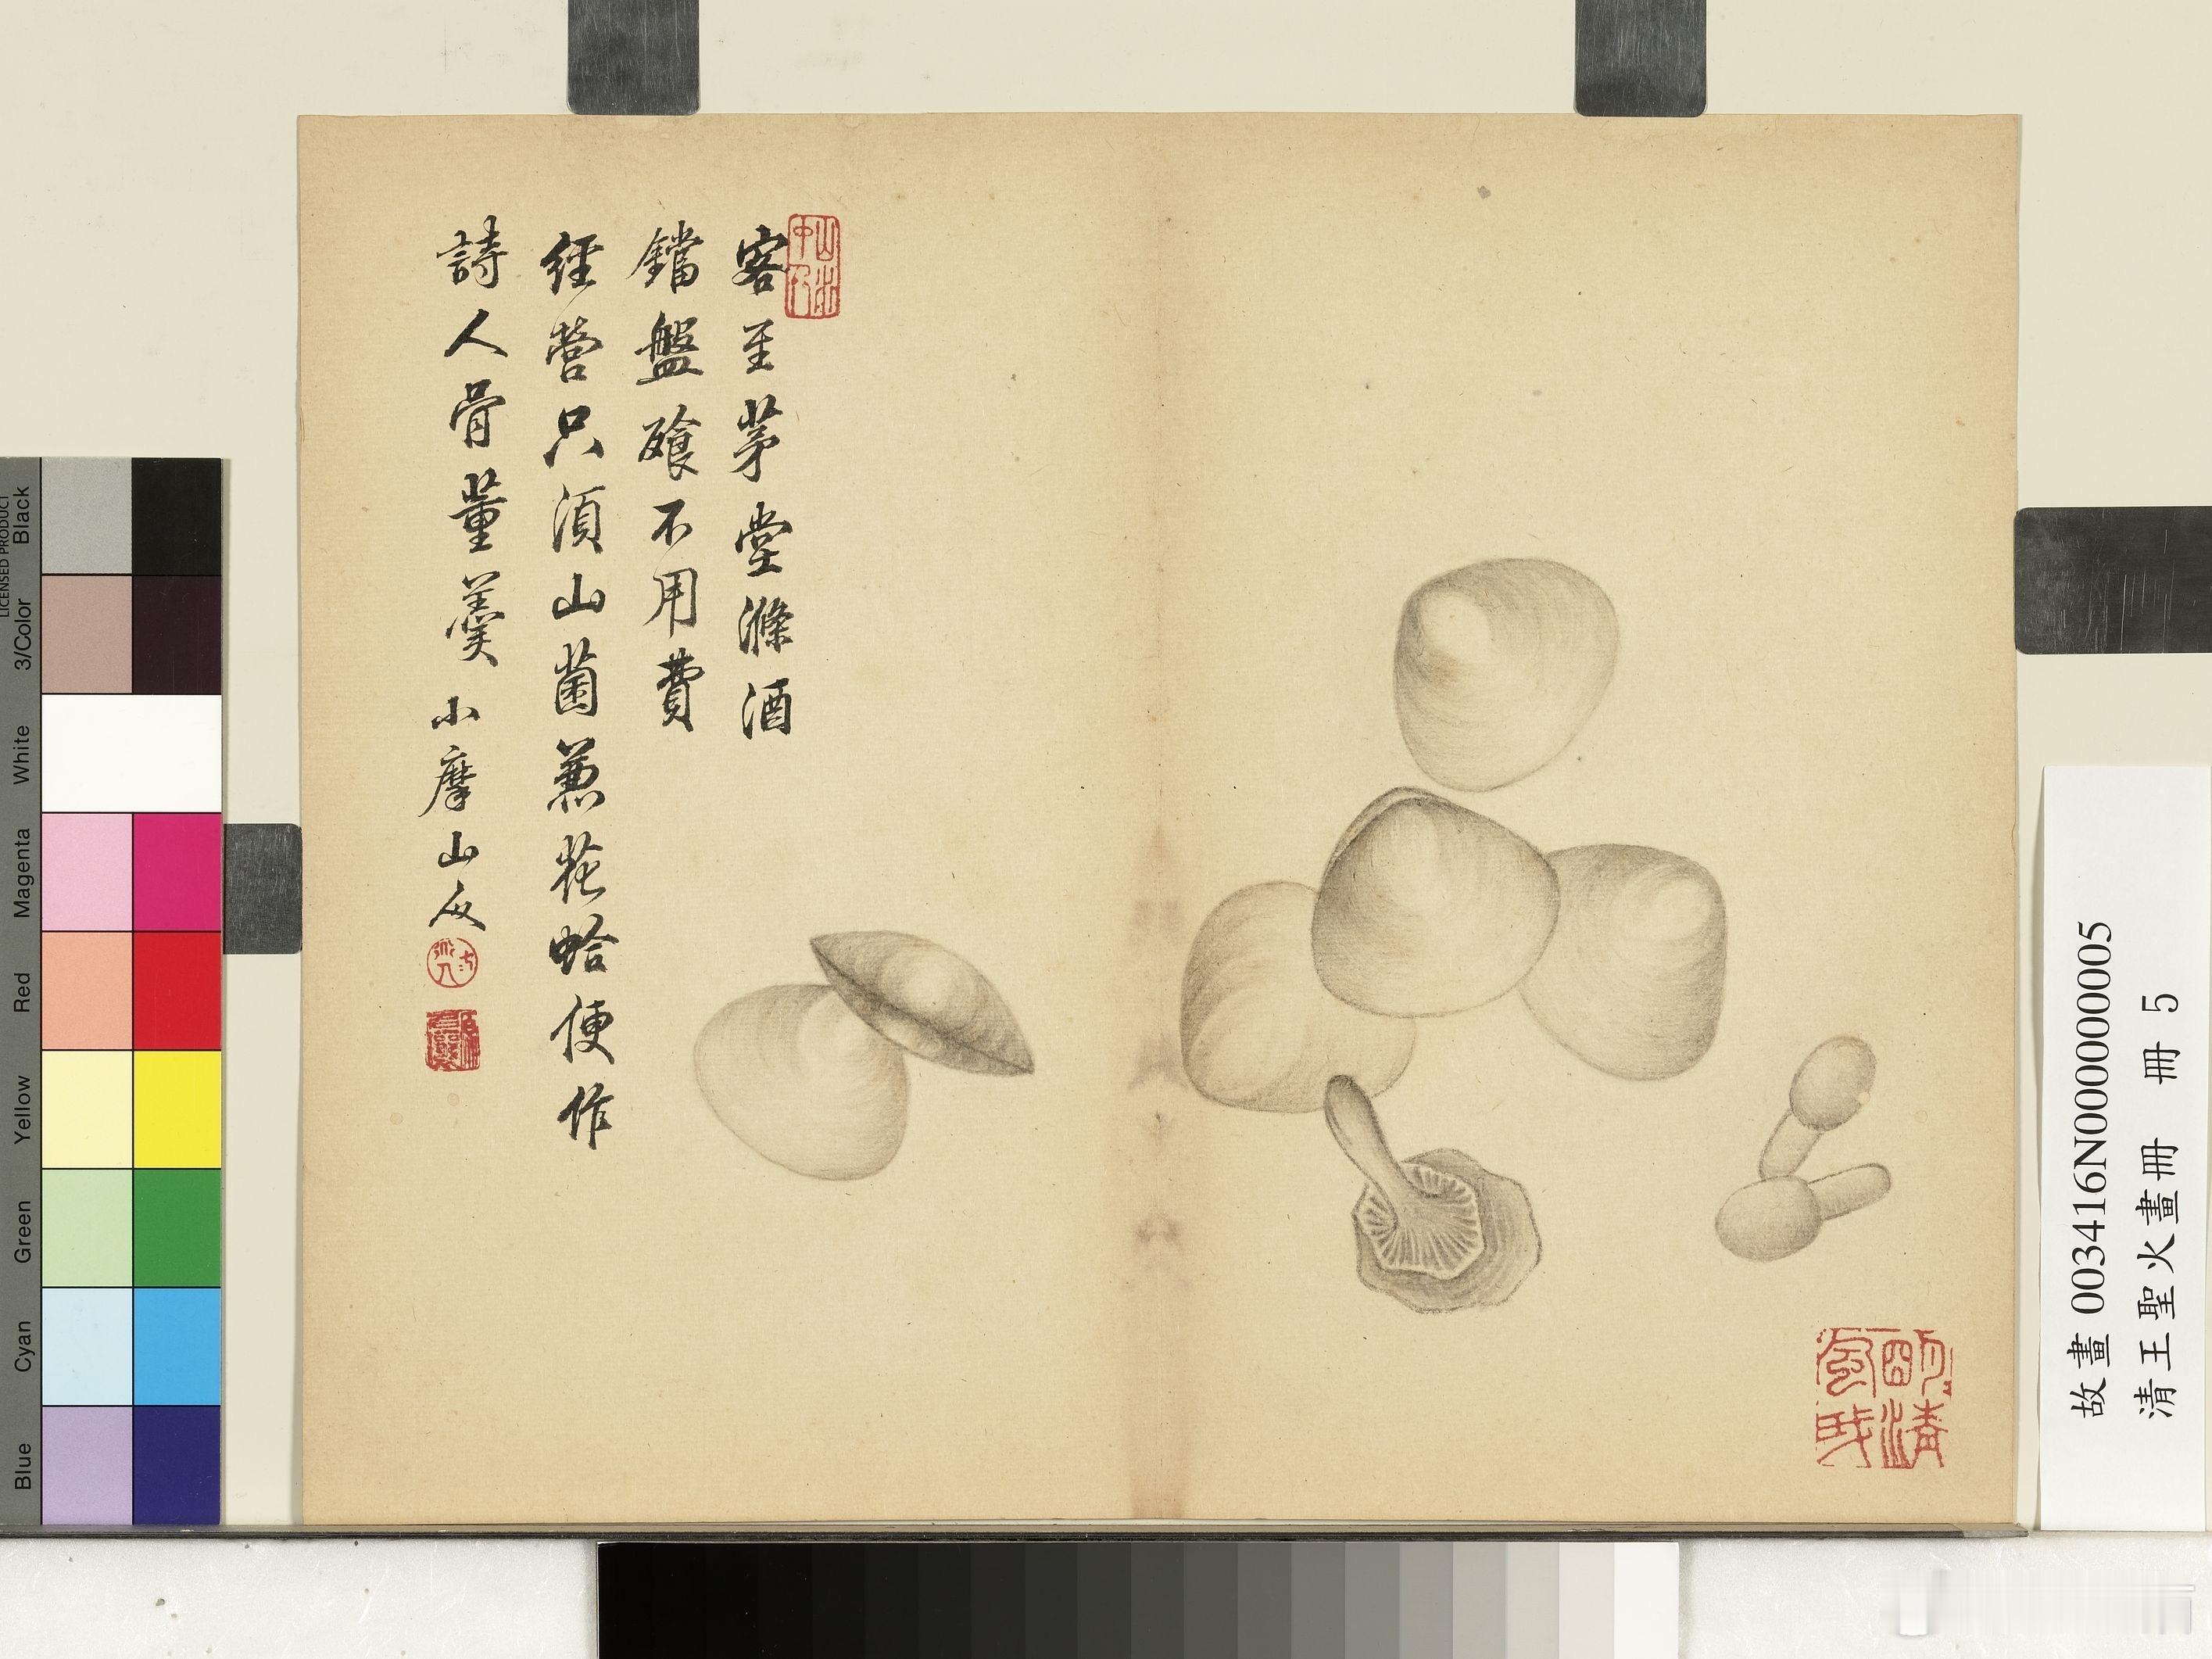 客至茅堂滌酒
鐺盤飱不用費
經營只須山菌兼花蛤便作
詩人骨董羹 小摩山人
故畫 003416N000000005
清王聖火畫冊 冊 5
LICENSED PRODUCT
Black
3/Color
White
Magenta
Red
Yellow
Green
Cyan
Blue